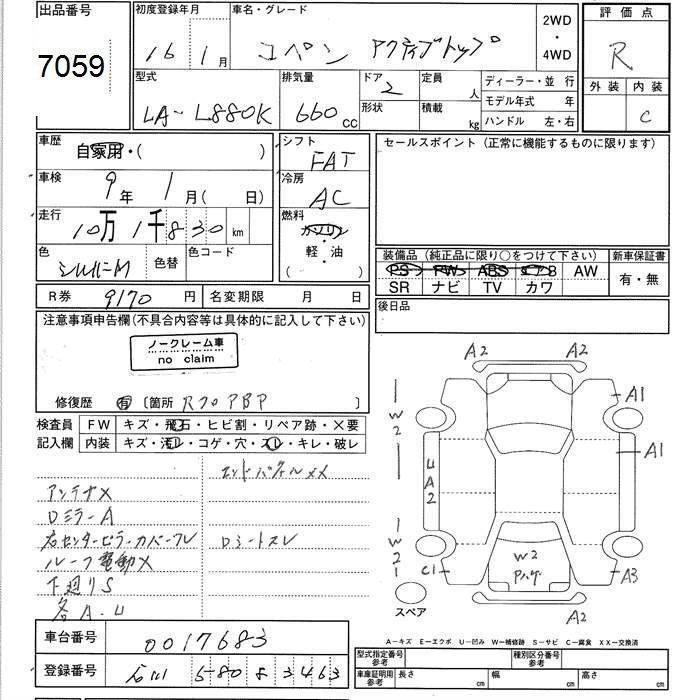 出品番号
7059
初度登録年月
16 1月
車名・グレード
コペン アクティブトップ
2WD
・
4WD
評価点
R
外装 内装
C
型式
LA-L880K
排気量
660 cc
ドア
2
形状
定員
人
積載
kg
ディーラー・並行
モデル年式 年
ハンドル 左・右
車歴
自家用・( )
車検
9年 1月( 日)
走行
10万1千830 km
色
シルバーM
色替
色コード
シフト
FAT
冷房
AC
燃料
ガソリン
・
軽・油
( )
セールスポイント(正常に機能するものに限ります)
装備品(純正品に限り○をつけて下さい)
PS PW ABS エアB AW
SR ナビ TV カワ
新車保証書
有・無
R券 9170円
名変期限 月 日
後日品
注意事項申告欄(不具合内容等は具体的に記入して下さい)
ノークレーム車
no claim
修復歴 有 〔箇所 Rフロア BP 〕
検査員
記入欄
FW キズ・飛石・ヒビ割・リペア跡・×要
内装 キズ・汚レ・コゲ・穴・スレ・キレ・破レ
エンドパネルXX
アンテナX
DミラーA
右センターピラーカバーフレ
Dシートスレ
ルーフ電動X
下廻りS
各A.U
A2 A2
A1
A1
W2
U
A2
W2
W2
C1
A3
A2
スペア
A-キズ E-エクボ U-凹み W-補修跡 S-サビ C-腐食 XX-交換済
車台番号
0017683
登録番号
石川 580 さ 3463
型式指定番号
参考
種別区分番号
参考
車庫証明用
参考
長さ cm
幅 cm
高さ cm